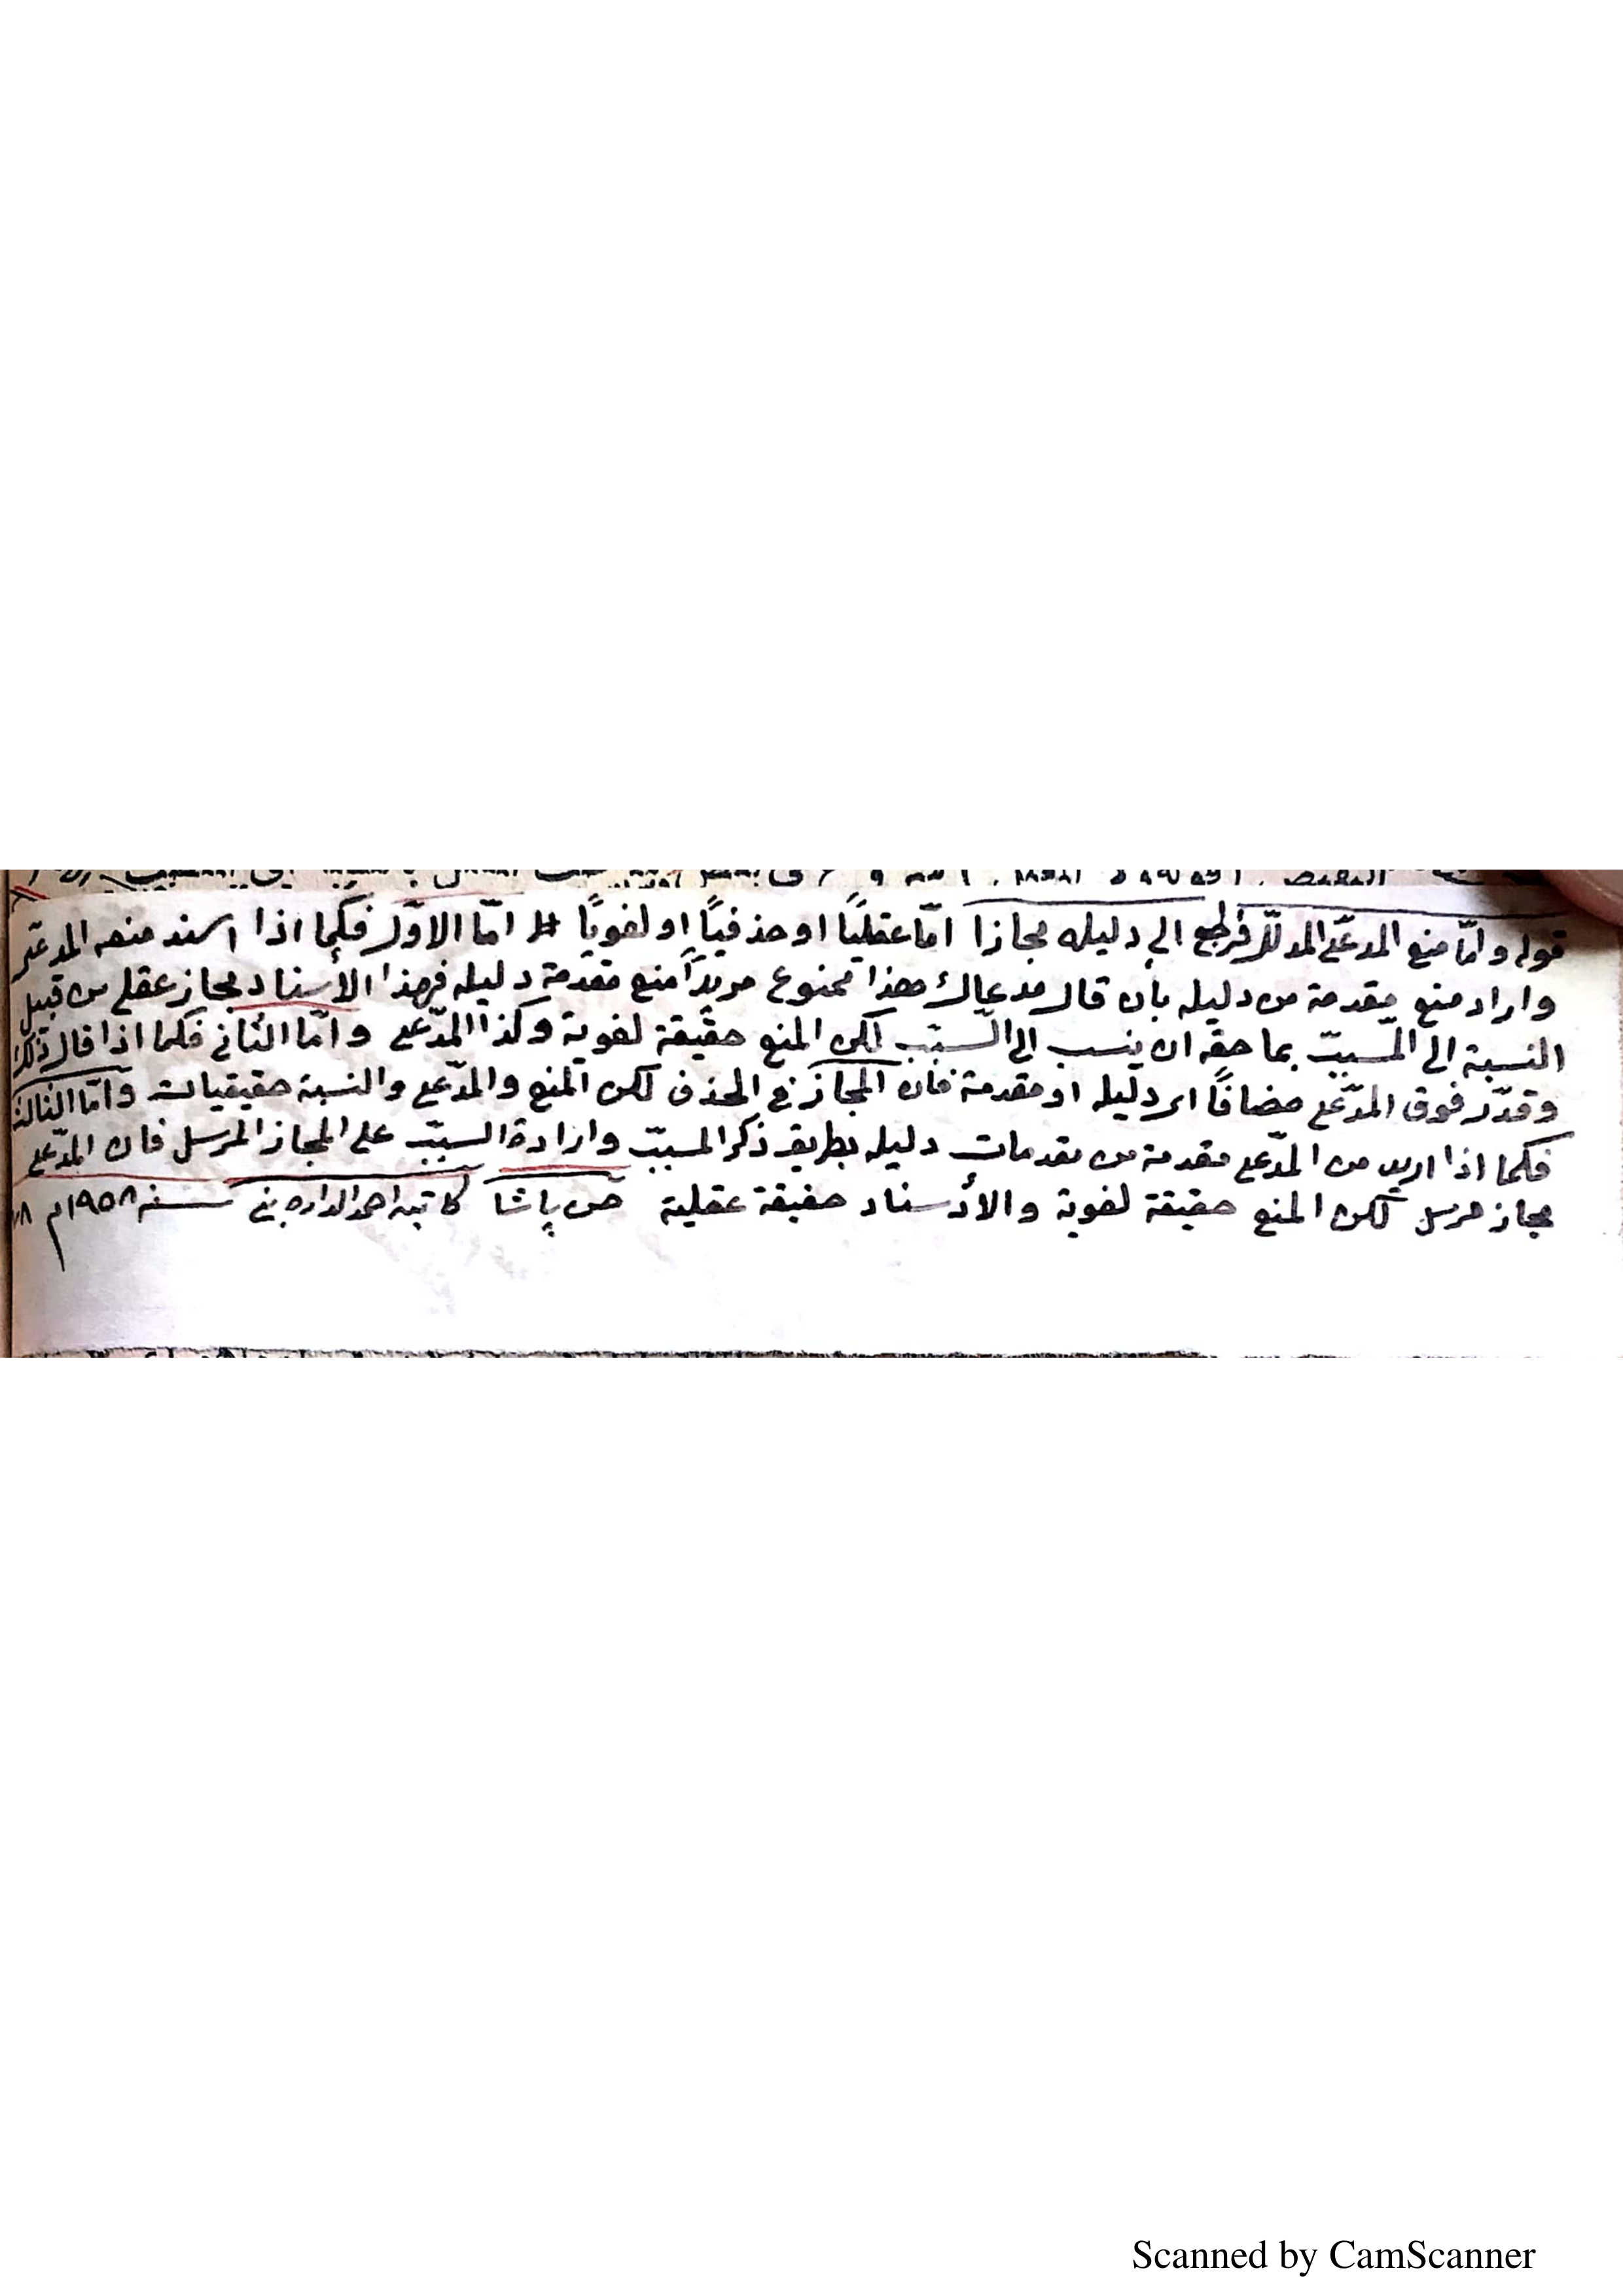 قوله وامّا منع المدعّى المدلّل فرجع الى دليله مجازا امّا عقليًا او حذفيًا او لغويًا امّا الاوّل فكما اذا اسند منعه المدعّى
واراد منع مقدمة من دليله بأن قال مدعاك هذا ممنوع مريدًا منع مقدمة دليله فهذا الأسناد مجاز عقلى من قبيل
النسبة الى المسبّب بما حقه ان ينسب الى السبّب لكن المنع حقيقة لغوية وكذا المدّعى وامّا الثانى فكما اذا قال ذلك
وقدّر فوق المدّعى مضافًا اى دليله او مقدمة فأن المجاز فى الحذف لكن المنع والمدّعى والنسبة حقيقيات وامّا الثالث
فكما اذا اريد من المدّعى مقدمة من مقدمات دليله بطريق ذكر المسبّب وارادة السبّب على المجاز المرسل فان المدّعى
مجاز مرسل لكن المنع حقيقة لغوية والأسناد حقيقة عقلية حن پاشا كاتبه احمد سنه ١٩٥٨م
Scanned by CamScanner